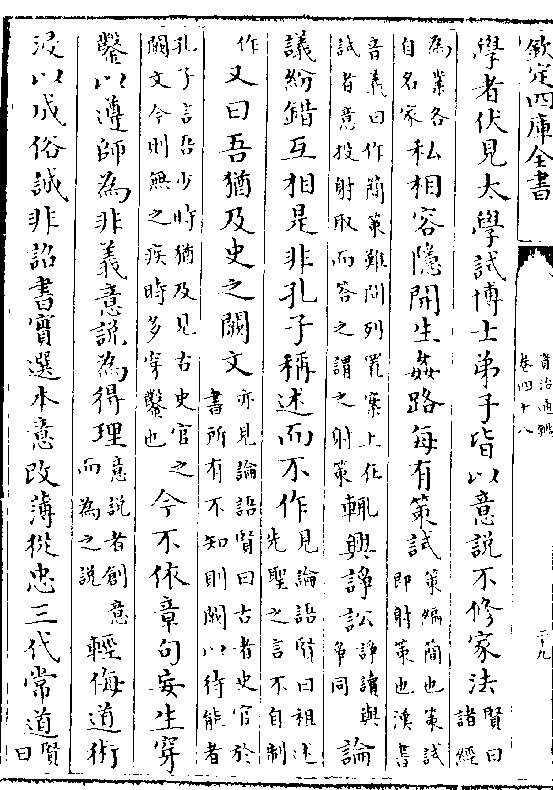 欽定四庫全書
資治通鑑
卷四十八
二十九
學者伏見太學試博士弟子皆以意說不修家法賢曰諸經
為業各自名家私相容隱開生姦路每有策試策編簡也策試即射策也漢書
音義曰作簡策難問列置案上任試者意投射取而答之謂之射策輒興諍訟諍讀與爭同論
議紛錯互相是非孔子稱述而不作見論語賢曰祖述先聖之言不自制
作又曰吾猶及史之闕文亦見論語賢曰古者史官於書所有不知則闕以待能者
孔子言吾少時猶及見古史官之闕文今則無之疾時多穿鑿也今不依章句妄生穿
鑿以遵師為非義意說為得理意說者創意而為之說輕侮道術
浸以成俗誠非詔書實選本意改薄從忠三代常道賢曰